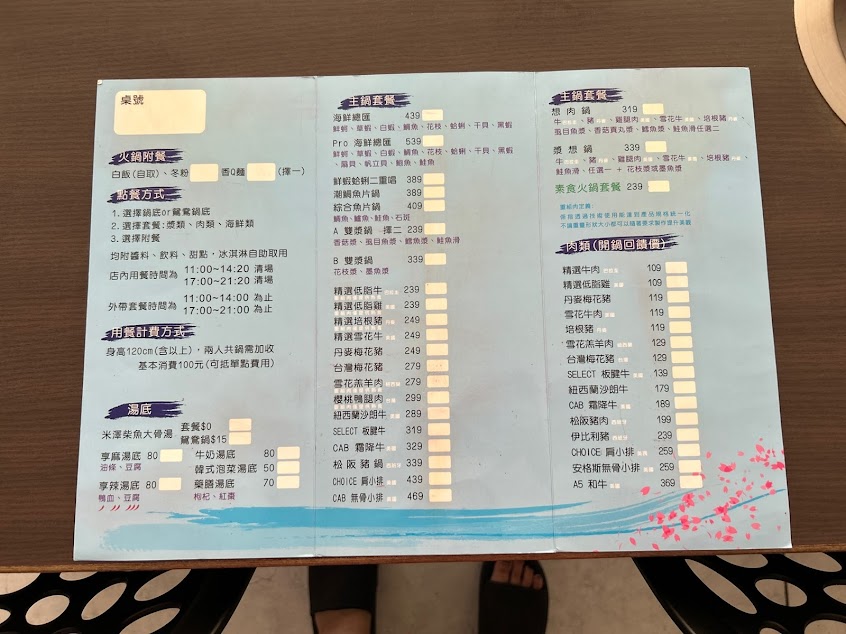 桌號
火鍋附餐
白飯(自取)、冬粉 香Q麵 (擇一)
點餐方式
1. 選擇鍋底or鴛鴦鍋底
2. 選擇套餐:漿類、肉類、海鮮類
3. 選擇附餐
均附醬料、飲料、甜點,冰淇淋自助取用
店內用餐時間為 11:00~14:20 清場
17:00~21:20 清場
外帶套餐時間為 11:00~14:00 為止
17:00~21:00 為止
用餐計費方式
身高120cm(含以上),兩人共鍋需加收
基本消費100元(可抵單點費用)
湯底
米澤柴魚大骨湯 套餐$0
鴛鴦鍋$15
享麻湯底 80 牛奶湯底 80
油條、豆腐 韓式泡菜湯底 50
享辣湯底 80 藥膳湯底 70
鴨血、豆腐 枸杞、紅棗
主鍋套餐
海鮮總匯 439
鮮蚵、草蝦、白蝦、鯛魚、花枝、蛤蜊、干貝、黑蝦
Pro 海鮮總匯 539
鮮蚵、草蝦、白蝦、鯛魚、花枝、蛤蜊、干貝、黑蝦
、扇貝、帆立貝、鮑魚、鮭魚
鮮蝦蛤蜊二重唱 389
潮鯛魚片鍋 389
綜合魚片鍋 409
鯛魚、鱸魚、鮭魚、石斑
A 雙漿鍋 擇二 239
香菇漿、虱目魚漿、鱈魚漿、鮭魚滑
B 雙漿鍋 339
花枝漿、墨魚漿
精選低脂牛 239
精選低脂雞 239
精選培根豬 249
精選雪花牛 249
丹麥梅花豬 249
台灣梅花豬 279
雪花羔羊肉 279
櫻桃鴨腿肉 299
紐西蘭沙朗牛 289
SELECT 板腱牛 319
CAB 霜降牛 329
松阪豬鍋 339
CHOICE 肩小排 419
CAB 無骨小排 469
主鍋套餐
想肉鍋 319
牛、豬、雞腿肉、雪花牛、培根豬、
虱目魚漿、香菇貢丸漿、鱈魚漿、鮭魚滑任選二
漿想鍋 339
牛、豬、雞腿肉、雪花牛、培根豬、
鮭魚滑、任選一 + 花枝漿或墨魚漿
素食火鍋套餐 239
重組肉定義:
肉類(開鍋回饋價)
精選牛肉 109
精選低脂雞 109
丹麥梅花豬 119
雪花牛肉 119
培根豬 119
雪花羔羊肉 129
台灣梅花豬 129
SELECT 板腱牛 139
紐西蘭沙朗牛 179
CAB 霜降牛 189
松阪豬肉 199
伊比利豬 239
CHOICE 肩小排 259
安格斯無骨小排 259
A5 和牛 369